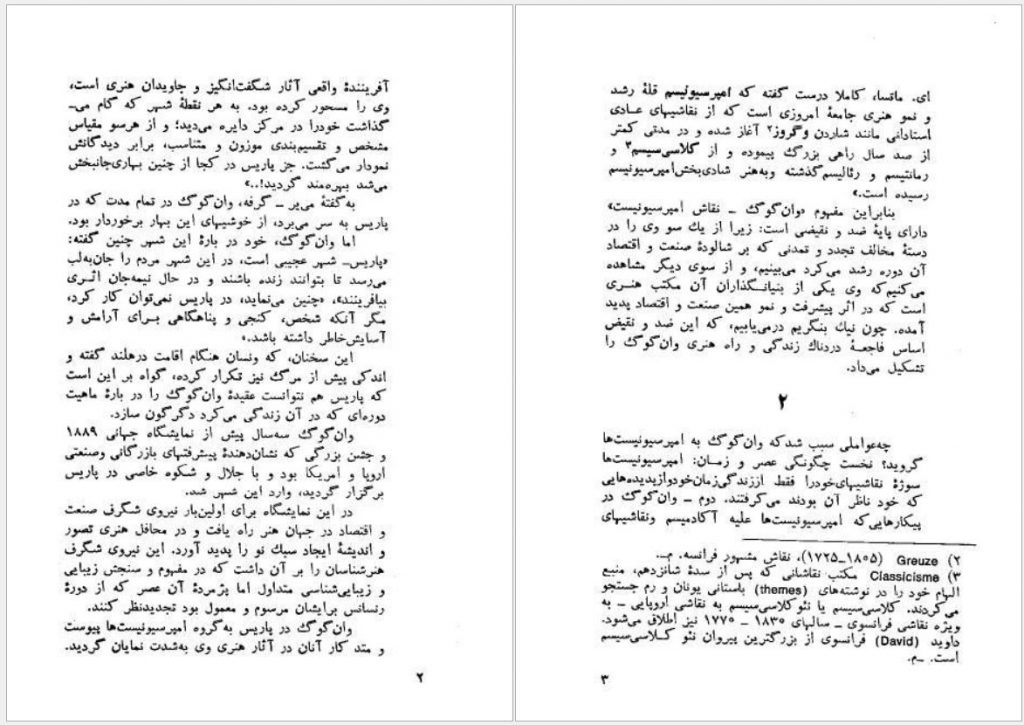 آفرینندهٔ واقعی آثار شگفت‌انگیز و جاویدان هنری است،
وی را مسحور کرده بود. به هر نقطهٔ شهر که گام می‌ـ
گذاشت خودرا در مرکز دایره می‌دید؛ و از هرسو مقیاس
مشخص و تقسیم‌بندی موزون و متناسب، برابر دیدگانش
نمودار می‌گشت. جز پاریس در کجا از چنین بهاری‌جانبخش
می‌شد بهره‌مند گردید!..»
به‌گفتهٔ می‌یر ـ گرفه، وان‌گوگ در تمام مدت که در
پاریس به سر می‌برد، از خوشیهای این بهار برخوردار بود.
اما وان‌گوگ، خود در بارهٔ این شهر چنین گفته:
«پاریس‌ـ شهر عجیبی است، در این شهر مردم را جان‌به‌لب
می‌رسد تا بتوانند زنده باشند و در حال نیمه‌جان اثری
بیافرینند»، «چنین می‌نماید، در پاریس نمی‌توان کار کرد،
مگر آنکه شخص، کنجی و پناهگاهی برای آرامش و
آسایش‌خاطر داشته باشد.»
این سخنان، که ونسان هنگام اقامت درهلند گفته و
اندکی پیش از مرگ نیز تکرار کرده، گواه بر این است
که پاریس هم نتوانست عقیدهٔ وان‌گوگ را در بارهٔ ماهیت
دوره‌ای که در آن زندگی می‌کرد دگرگون سازد.
وان‌گوگ سه‌سال پیش از نمایشگاه جهانی ۱۸۸۹
و جشن بزرگی که نشان‌دهندهٔ پیشرفتهای بازرگانی وصنعتی
اروپا و امریکا بود و با جلال و شکوه خاصی در پاریس
برگزار گردید، وارد این شهر شد.
در این نمایشگاه برای اولین‌بار نیروی شگرف صنعت
و اقتصاد در جهان هنر راه یافت و در محافل هنری تصور
و اندیشهٔ ایجاد سبك نو را پدید آورد. این نیروی شگرف
هنرشناسان را بر آن داشت که در مفهوم و سنجش زیبایی
و زیبایی‌شناسی متداول اما پژمردهٔ آن عصر که از دورهٔ
رنسانس برایشان مرسوم و معمول بود تجدیدنظر کنند.
وان‌گوگ در پاریس به‌گروه امپرسیونیست‌ها پیوست
و متد کار آنان در آثار هنری وی به‌شدت نمایان گردید.
۲
ای. ماتسا، کاملا درست گفته که امپرسیونیسم قلهٔ رشد
و نمو هنری جامعهٔ امروزی است که از نقاشیهای عادی
استادانی مانند شاردن وگروز۲ آغاز شده و در مدتی کمتر
از صد سال راهی بزرگ پیموده و از کلاسی‌سیسم۳ و
رمانتیسم و رئالیسم‌گذشته وبه‌هنر شادی‌بخش‌امپرسیونیسم
رسیده است.»
بنابراین مفهوم «وان‌گوگ ـ نقاش امپرسیونیست»
دارای پایهٔ ضد و نقیضی است: زیرا از یك سو وی را در
دستهٔ مخالف تجدد و تمدنی که بر شالودهٔ صنعت و اقتصاد
آن دوره رشد می‌کرد می‌بینیم، و از سوی دیگر مشاهده
می‌کنیم‌که وی یکی از بنیانگذاران آن مکتب هنری
است که در اثر پیشرفت و نمو همین صنعت و اقتصاد پدید
آمده. چون نیك بنگریم درمی‌یابیم، که این ضد و نقیض
اساس فاجعهٔ دردناك زندگی و راه هنری وان‌گوگ را
تشکیل می‌داد.
۲
چه‌عواملی سبب شدکه وان‌گوگ به امپرسیونیست‌ها
گروید؟ نخست چگونگی عصر و زمان: امپرسیونیست‌ها
سوژهٔ نقاشیهای‌خودرا فقط اززندگی‌زمان‌خودوازپدیده‌هایی
که خود ناظر آن بودند می‌گرفتند. دوم ـ وان‌گوگ در
پیکارهایی‌که امپرسیونیست‌ها علیه آکادمیسم ونقاشیهای
۲) Greuze (۱۸۰۵ـ۱۷۲۵)، نقاش مشهور فرانسه. م‍ـ.
۳) Classicisme مکتب نقاشانی که پس از سدهٔ شانزدهم، منبع
الهام خود را در نوشته‌های (themes) باستانی یونان و رم جستجو
می‌کردند. کلاسی‌سیسم یا نئوکلاسی‌سیسم به نقاشی اروپایی ـ به
ویژه نقاشی فرانسوی ـ سالهای ۱۸۳۰ ـ ۱۷۷۰ نیز اطلاق می‌شود.
داوید (David) فرانسوی از بزرگترین پیروان نئو کلاسی‌سیسم
است. ـم.
۳